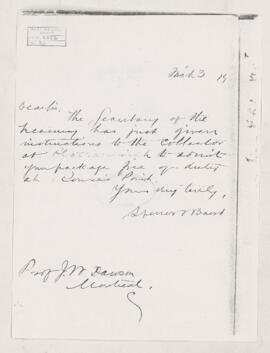 Mch 3 19
Dear Sir, The Secretary of the
treasury has just given
instructions to the Collector
at to admit
your package free of duty
at Rouse's Point
Yours very truly,
Spencer F Baird
Prof J W Dawson
Montreal.